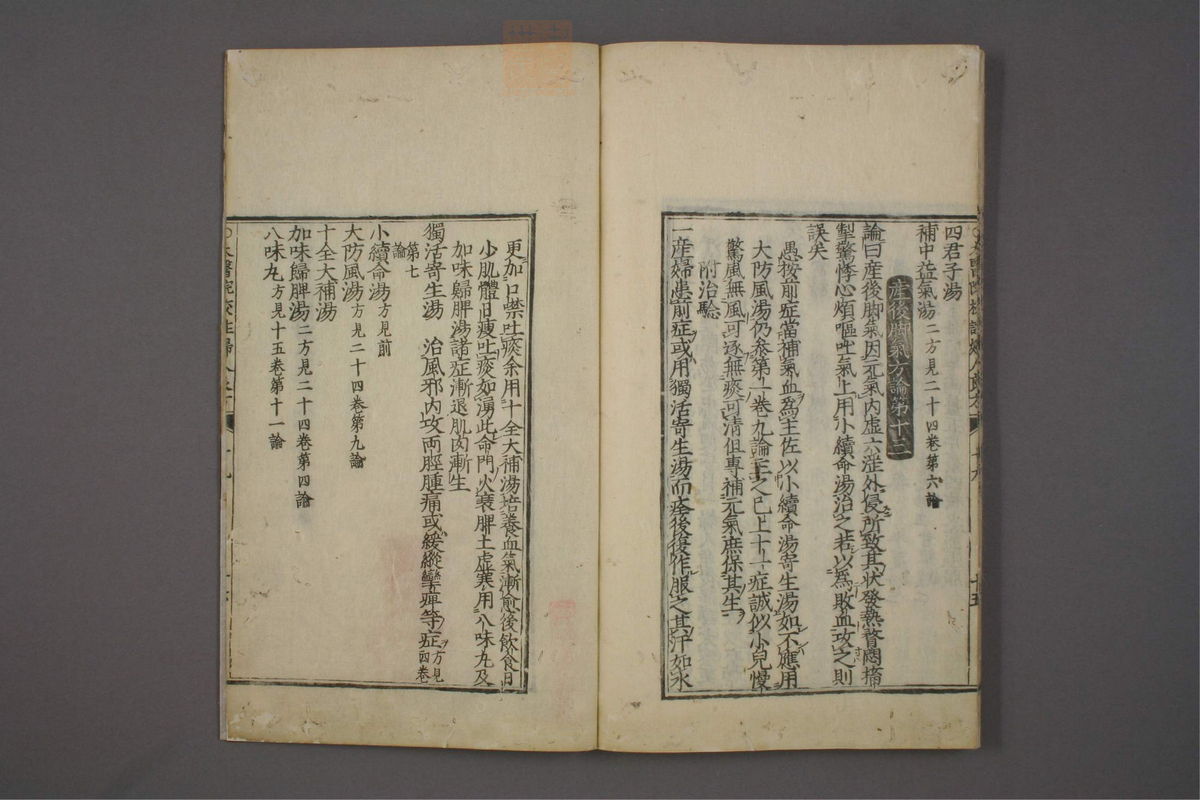 四君子湯
補中益氣湯二方見二十四卷第六論
産後脚氣方論第十三
論曰産後脚氣因元氣内虚六淫外侵所致其狀發熱瞀悶搐
掣驚悸心煩嘔吐氣上用小續命湯治之若以爲敗血攻之則
誤矣
愚按前症當補氣血爲主佐以小續命湯寄生湯如不應用
大防風湯仍參第一卷九論主之已上十一症誠似小兒慢
驚風無風可逐無痰可清但專補元氣庶保其生
附治驗
一産婦患前症或用獨活寄生湯而痊後復作服之其汗如水
更加口噤吐痰余用十全大補湯培養血氣漸愈後飲食日
少肌體日瘦吐痰如湧此命門火衰脾土虚寒用八味丸及
加味歸脾湯諸症漸退肌肉漸生
獨活寄生湯 治風邪内攻兩脛腫痛或緩縱攣痺等症方見四卷
第七論
小續命湯方見前
大防風湯方見二十四卷第九論
十全大補湯
加味歸脾湯二方見二十四卷第四論
八味丸方見十五卷第十一論